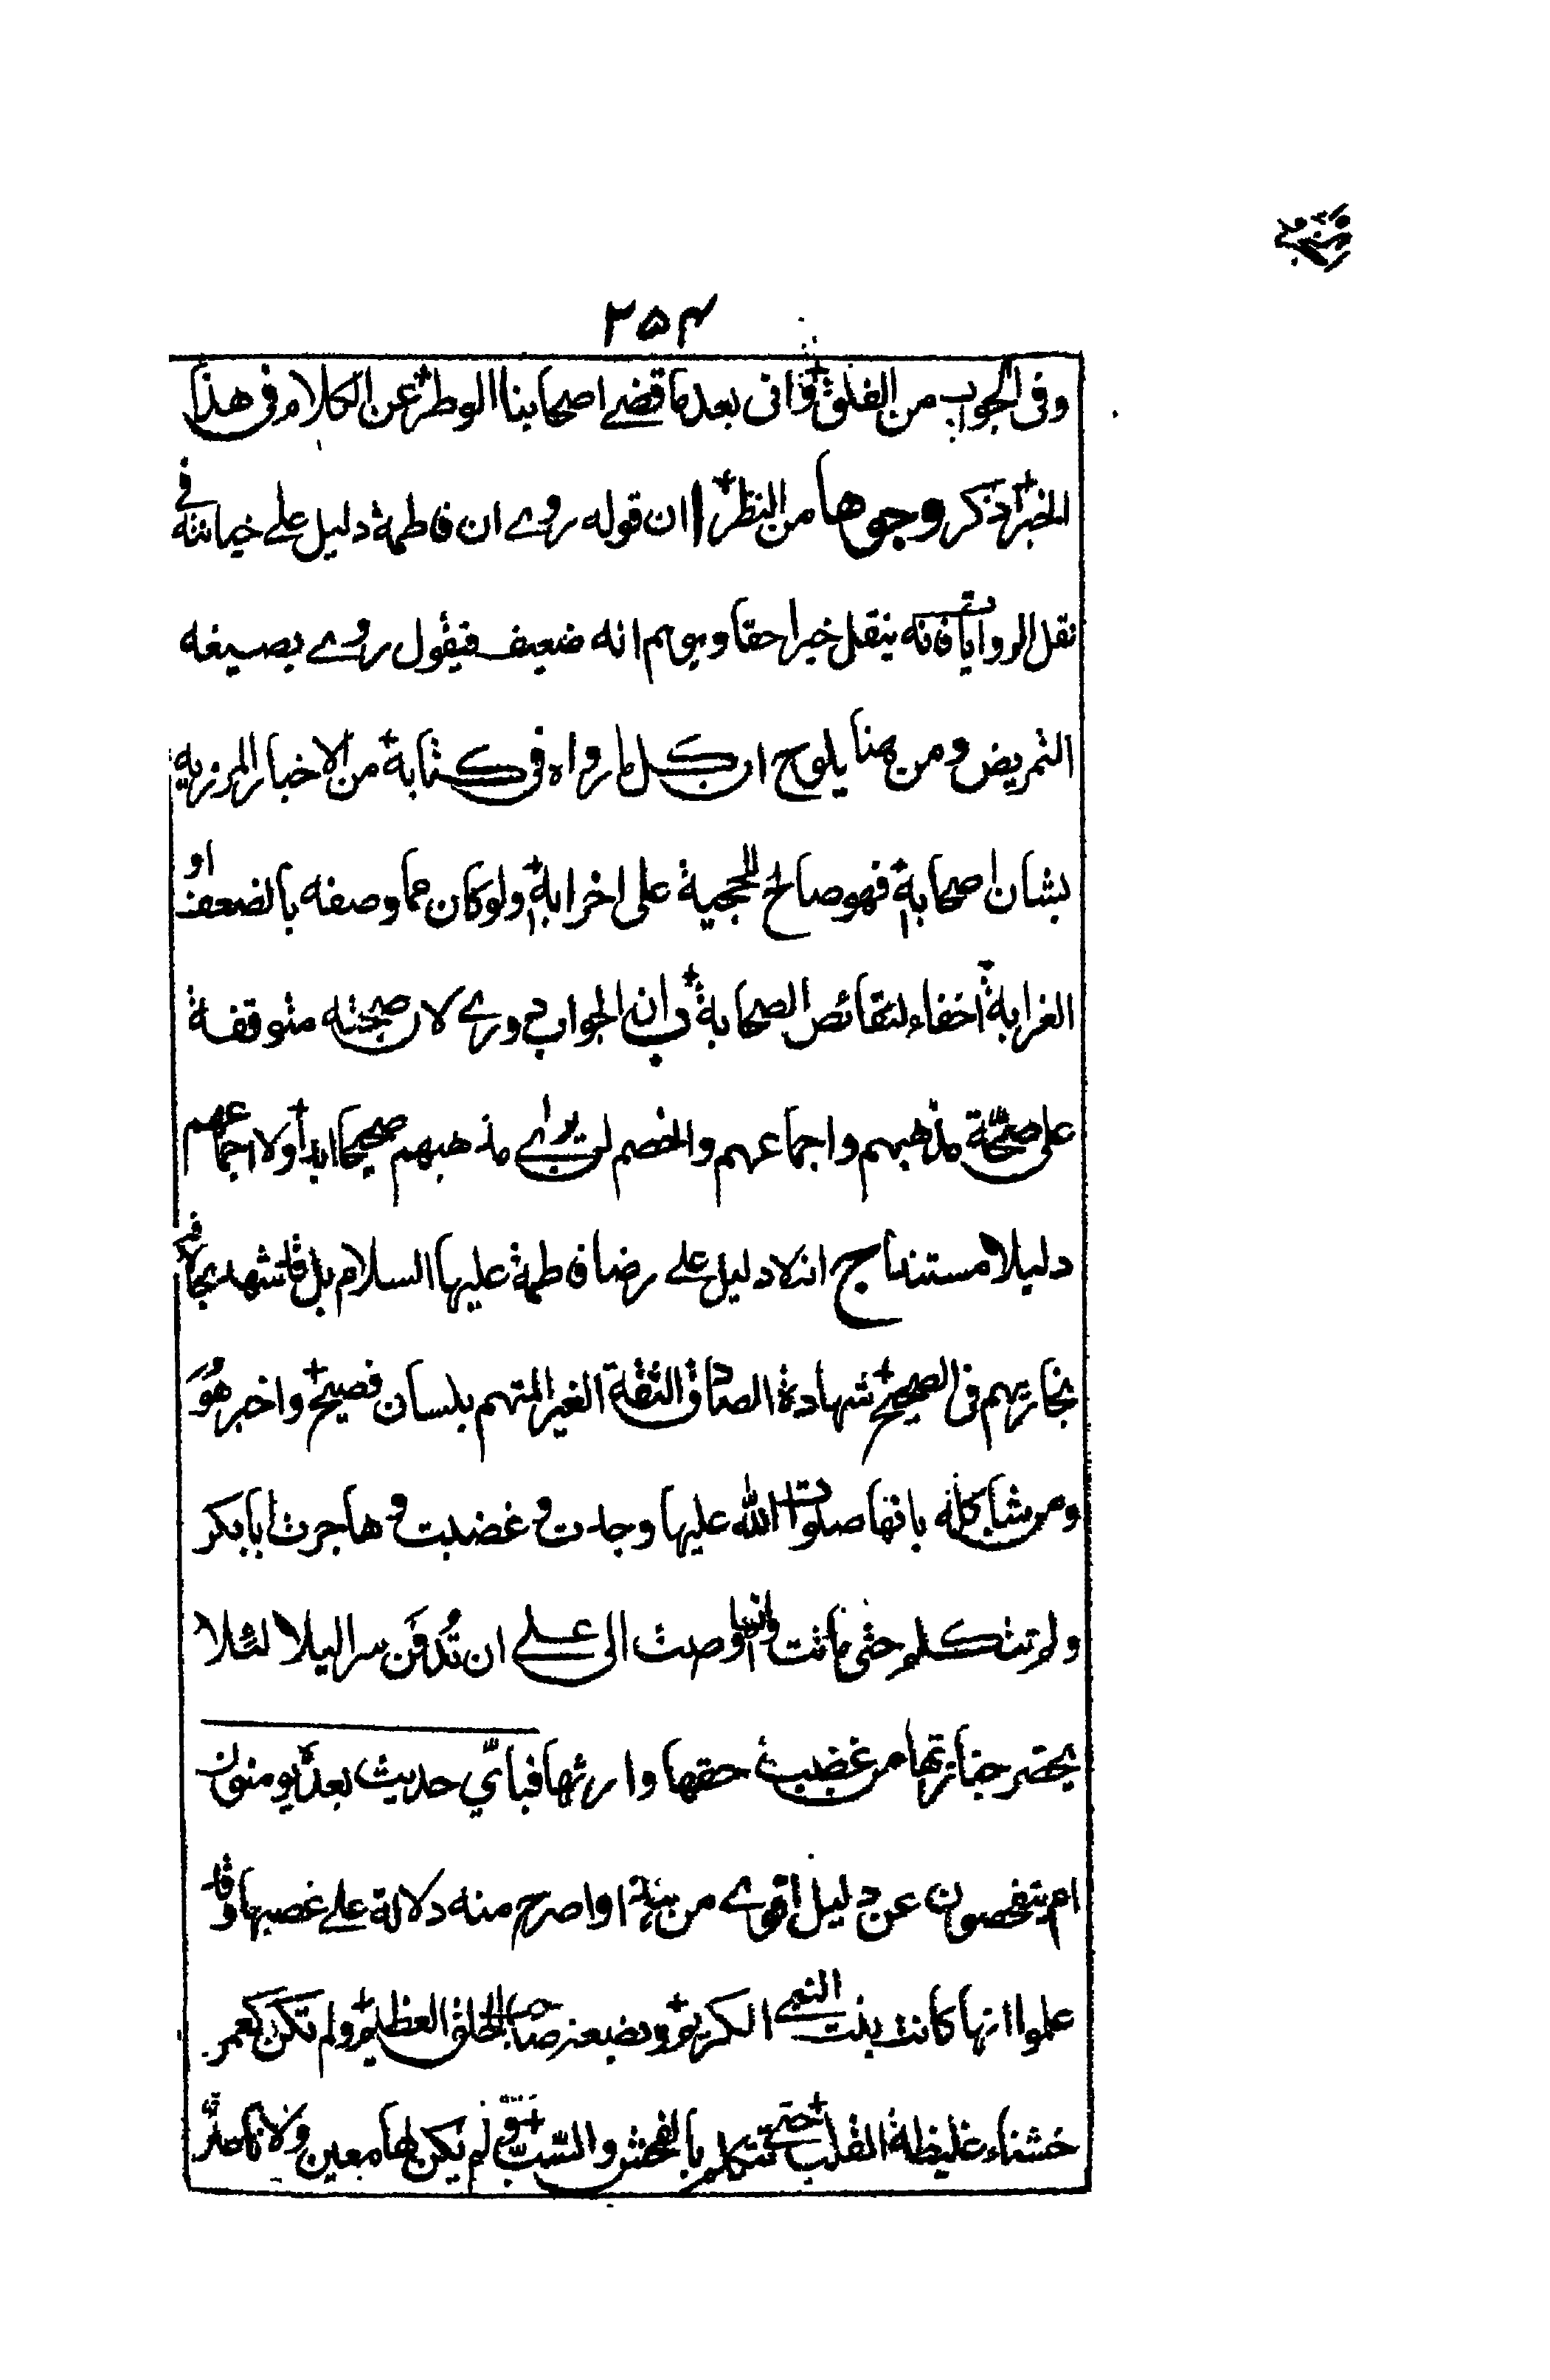 ۲۵۴
وفی الجواب من الفلق وانی بعد ما قضے اصحابنا الوطر عن الکلام فی هذا
الخبر اذکر وجوها من النظر ا ان قوله روے ان فاطمة دلیل علے خیانته فی
نقل الروایات فانه ینقل خبرا حقا ویوهم انه ضعیف فیقول روے بصیغه
التمریض ومن هنا یلوح ان کل ما رواه فی کتابه من الاخبار المرزیه
بشان اصحابه فهو صالح للحجیة علی اخرابه ولو کان مما وصفه بالضعف او
الغرابة اخفاء لنقائص الصحابة ب ان الجواب دورے لان صحته متوقفة
علی صحّة مذهبهم واجماعهم والخصم لن یراے مذهبهم صحیحا ابدا ولا اجماعهم
دلیلا مستندا ج ان لا دلیل علے رضا فاطمة علیها السلام بل قد شهد بخلافه
بخاریهم فی الصحیح شهادة الصادق الثقة الغیر المتهم بلسان فصیح واخبر هو
ومن شاکله بانها صلوات الله علیها وجدت و غضبت و هاجرت ابا بکر
ولم تتکلم حتی ماتت وانها اوصت الی علے ان تُدفَن سرا لیلا لئلا
یحضر جنازتها من غضب حقها وارثها فبایّ حدیث بعده یومنون
ام یتفحصون عن دلیل اقوے من هذا او اصرح منه دلالة علے غصبها وقد
علموا انها کانت بنت النبے الکریم وبضعة صاحب الخلق العظیم ولم تکن کعمر
خشناء غلیظة القلب حتے تتکلم بالفحش والسّب و لم یکن لها معین ولا ناصر